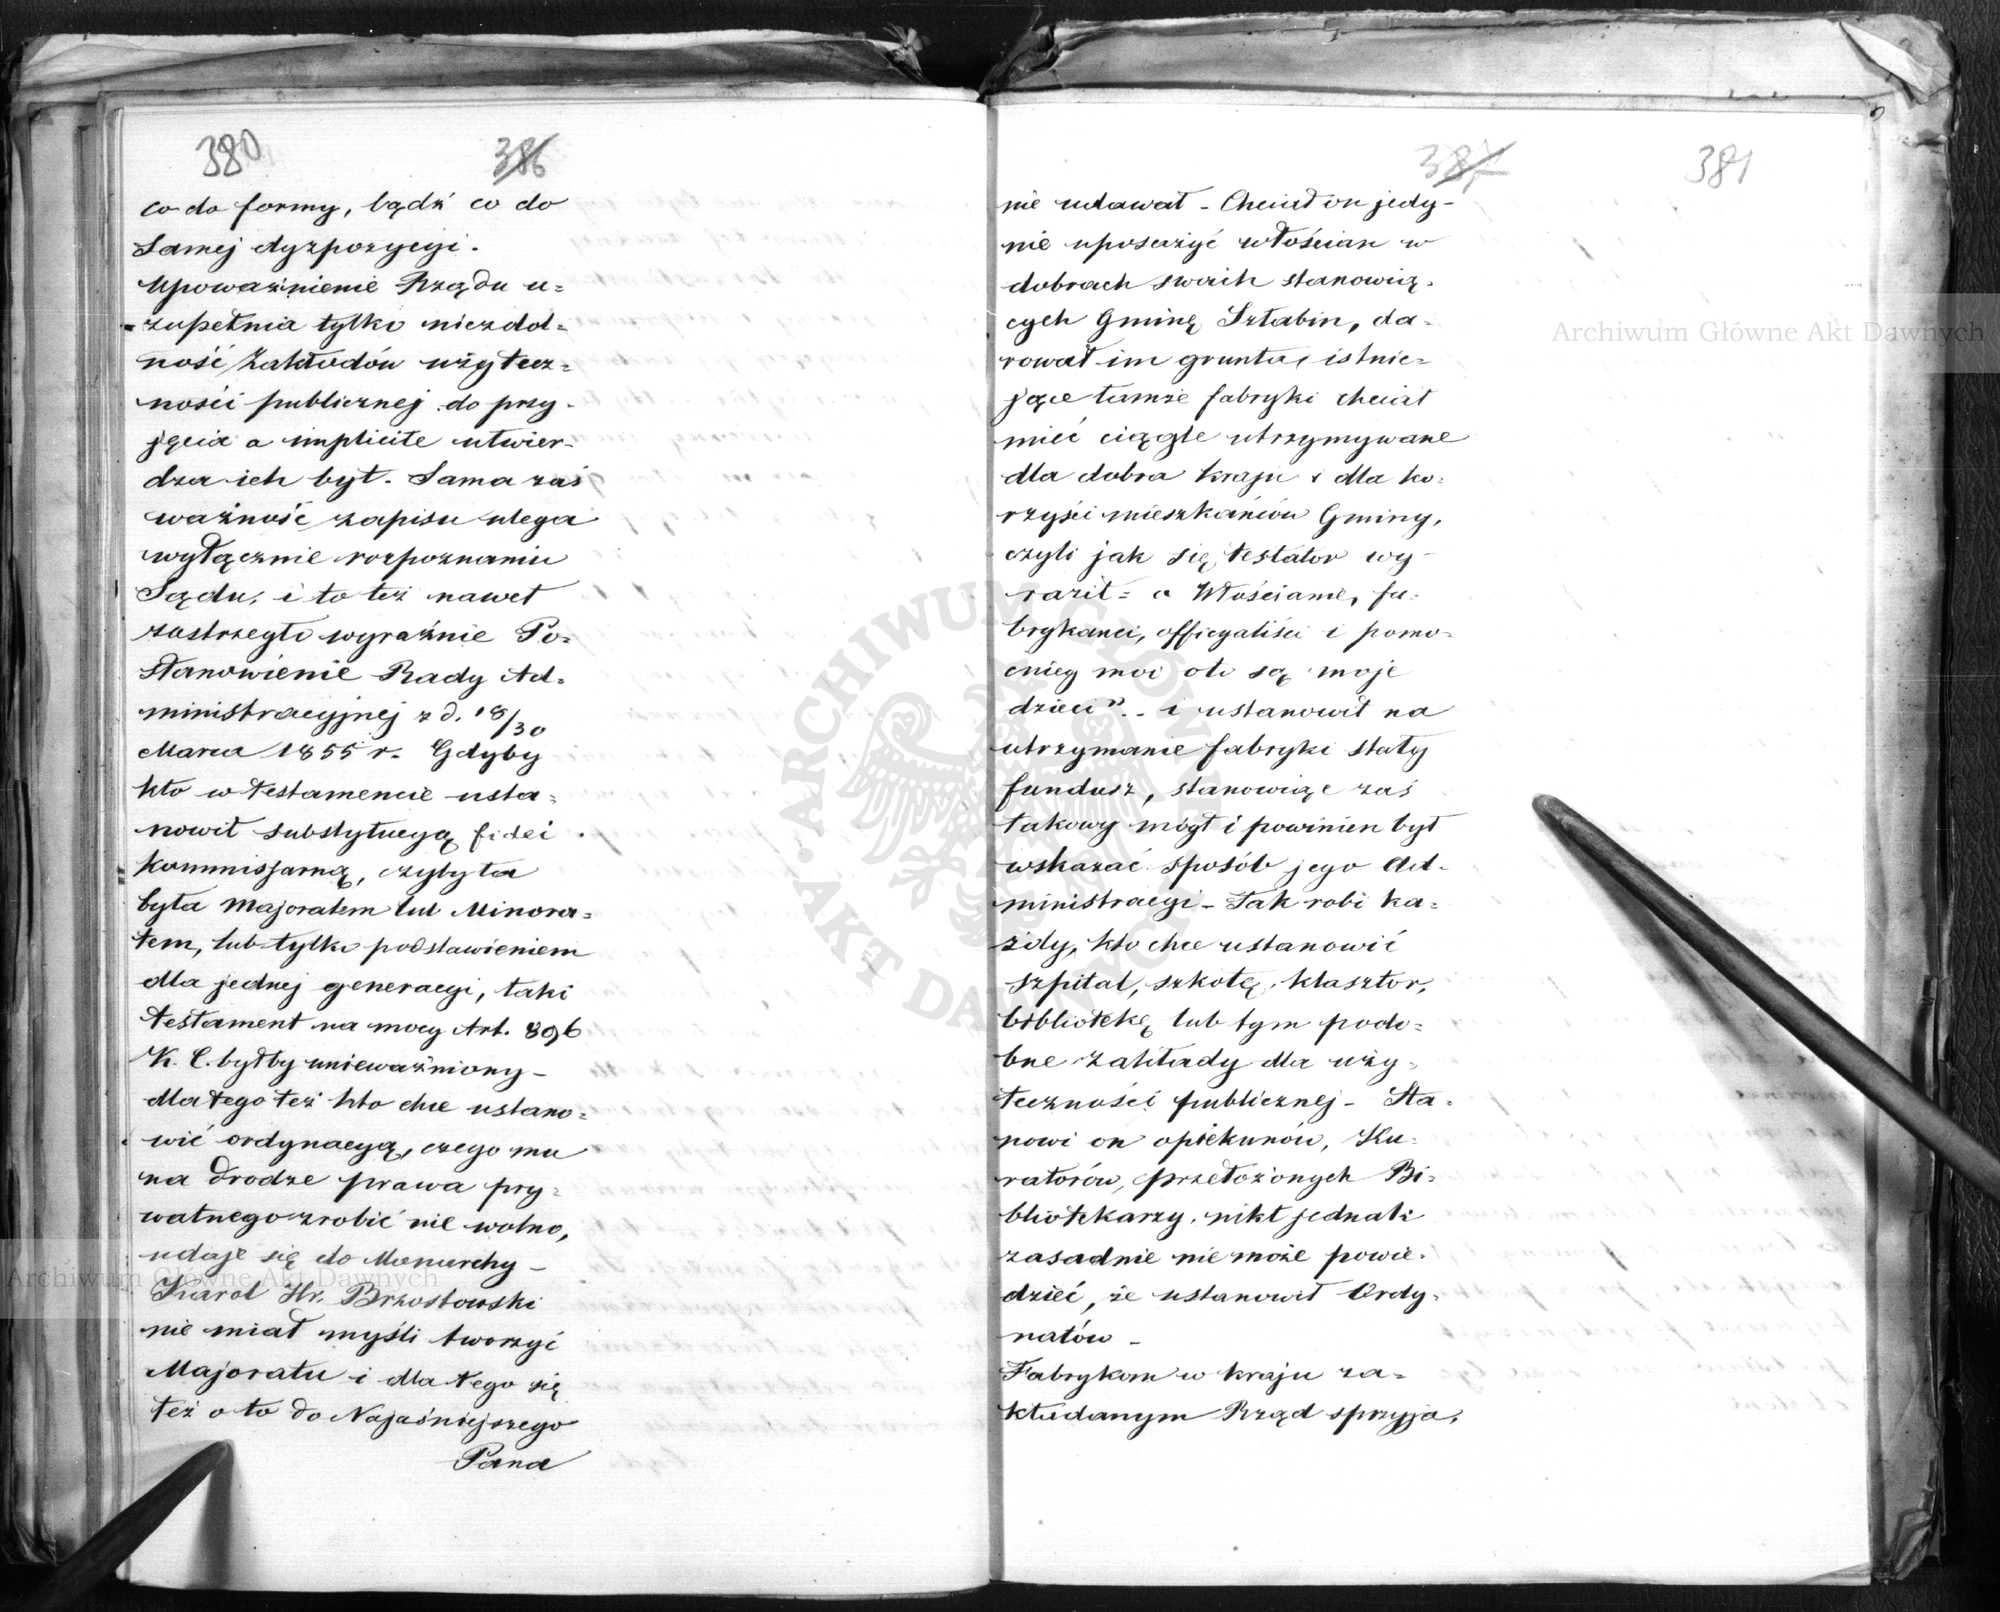 380 386
co do formy, bądź co do
Samej dyzpozycyi.
Upoważnienie Rządu u=
zupełnia tylko niezdol=
ność Zakładów użytecz=
ności publicznej do przy=
jęcia a implicite utwier=
dza ich byt. Sama zaś
ważność zapisu ulega
wyłącznie rozpoznaniu
Sądu, i to też nawet
zastrzegło wyraźnie Po=
stanowienie Rady Ad=
ministracyjnej z d. 18/30
Marca 1855 r. Gdyby
kto w testamencie usta=
nowił substytucyą fidei
kommissarną, czyby ta
była Majoratem lub Minora=
tem, lub tylko podstawieniem
dla jednej generacyi, taki
testament na mocy Art. 896
K. C. byłby unieważniony –
dla tego też kto chce ustano=
wić ordynacyą, czego mu
na drodze prawa pry=
watnego zrobić nie wolno,
udaje się do Monarchy –
Karol Hr. Brzostowski
nie miał myśli tworzyć
Majoratu i dla tego się
też o to do Najaśniejszego
Pana
387 381
nie udawał – Chciał on jedy=
nie uposażyć włościan w
dobrach swoich stanowią=
cych Gminę Sztabin, da=
rował im grunta, istnie=
jące tamże fabryki chciał
mieć ciągle utrzymywane
dla dobra kraju i dla ko=
rzyści mieszkańców Gminy,
czyli jak się testator wy=
raził = a Włościanie, fa=
brykanci, officyaliści i pomo=
cnicy moi oto są moje
dzieci" – i ustanowił na
utrzymanie fabryki stały
fundusz, stanowiąc zaś
takowy mógł i powinien był
wskazać sposób jego Ad=
ministracyi – Tak robi ka=
żdy, kto chce ustanowić
szpital, szkołę, klasztor,
bibliotekę lub tym podo=
bne zakłady dla uży=
teczności publicznej – Sta=
nowi on opiekunów, Ku=
ratorów, przełożonych Bi=
bliotekarzy, nikt jednak
zasadnie nie może powie=
dzieć, że ustanowił Ordy=
natów –
Fabrykom w kraju za=
kładanym Rząd sprzyja,
Archiwum Główne Akt Dawnych
Archiwum Główne Akt Dawnych
ARCHIWUM GŁÓWNE AKT DAWNYCH